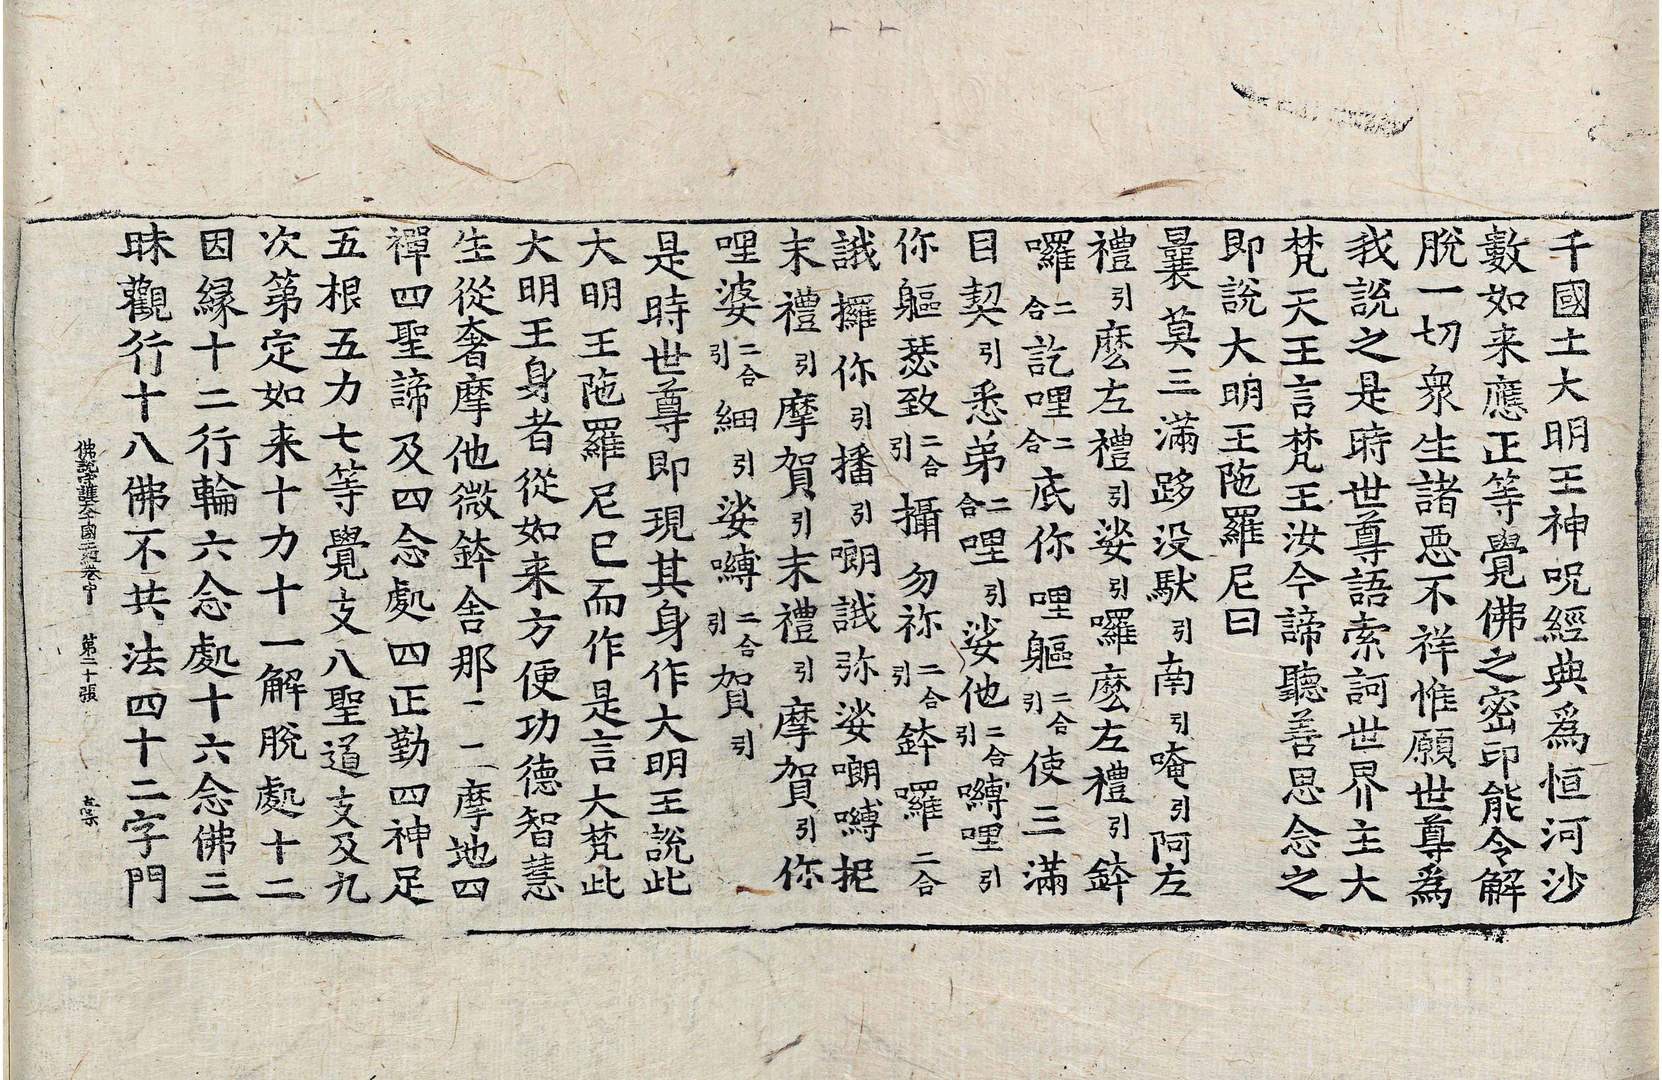 千國土大明王神呪經典爲恒河沙
數如来應正等覺佛之密印能令解
脫一切衆生諸惡不祥惟願世尊爲
我說之是時世尊語索訶世界主大
梵天王言梵王汝今諦聽善思念之
即說大明王陁羅尼曰
曩莫三滿跢没䭾引南引唵引阿左
禮引麽左禮引娑引囉麽左禮引鉢
囉二合訖哩二合底你哩軀二合引使三滿
目契引悉弟二合哩引娑他二合引嚩哩引
你軀瑟致二合引攝勿祢二合引鉢囉二合
誐攞你引播引嘲誐弥娑嘲嚩抳
末禮引摩賀引末禮引摩賀引你
哩婆二合引細引娑嚩二合引賀引
是時世尊即現其身作大明王說此
大明王陁羅尼已而作是言大梵此
大明王身者從如来方便功德智慧
生從奢摩他微鉢舍那一二摩地四
禪四聖諦及四念處四正勤四神足
五根五力七等覺支八聖道支及九
次第定如来十力十一解脫處十二
因緣十二行輪六念處十六念佛三
昧觀行十八佛不共法四十二字門
佛說守護大千國土經卷中 第二十張